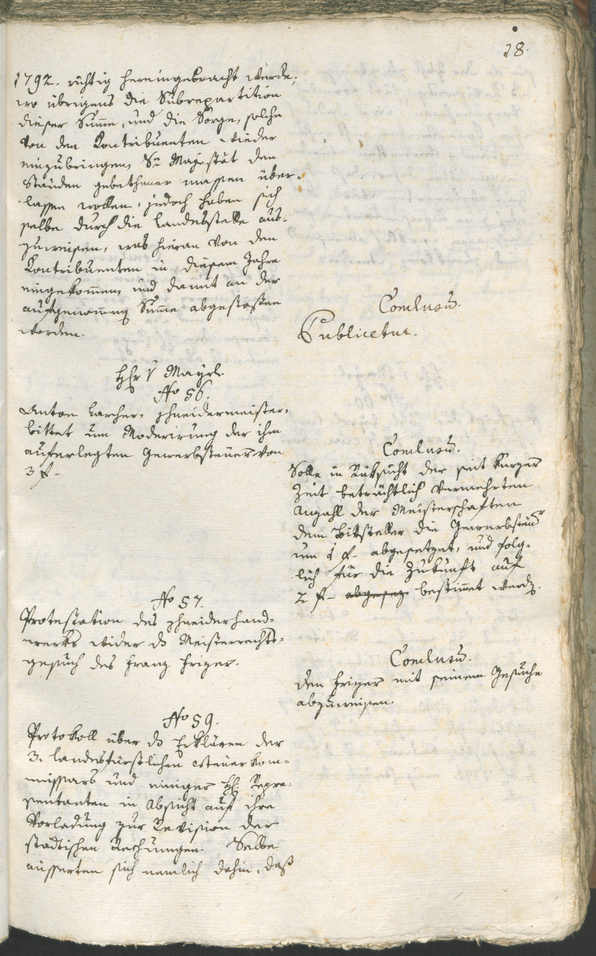 28.
1792. richtig hereingebracht würde;
wo übrigens die Subrepartition
dieser Summe, und die Sorge, solche
von den Kontribuenten wieder
einzubringen, Se Majestät den
Ständen gebethener massen über-
lassen wollen, jedoch haben sich
selbe durch die Landesstelle aus-
zuweisen, was hievon von den
Kontribuenten in diesem Jahre
eingekommen, und damit an der
aufgenommenen Summe abgestossen
worden.
Conclusum.
Publicetur.
Mayrl.
No 56.
Anton Larcher, Schneidermeister,
bittet um Moderirung der ihm
auferlegten Gewerbsteuer von
3 f.
Conclusum.
Solle in Rücksicht der seit kurzer
Zeit beträchtlich vermehrten
Anzahl der Meisterschaften
dem Bittsteller die Gewerbsteuer
um 1 f. abgesetzet, und folg-
lich für die Zukunft auf
2 f. bestimmet werden.
No 57.
Protestation des Schneiderhand-
werks wider das Meisterrechts-
gesuch des Franz Friger.
Conclusum.
Den Friger mit seinem Gesuche
abzuweisen.
No 59.
Protokoll über das Erklären der
3. landesfürstlichen Steuerkom-
missars und einiger HH. Repre-
sentanten in Absicht auf ihre
Vorladung zur Revision der
städtischen Rechnungen. Selbe
äusserten sich nemlich dahin, daß